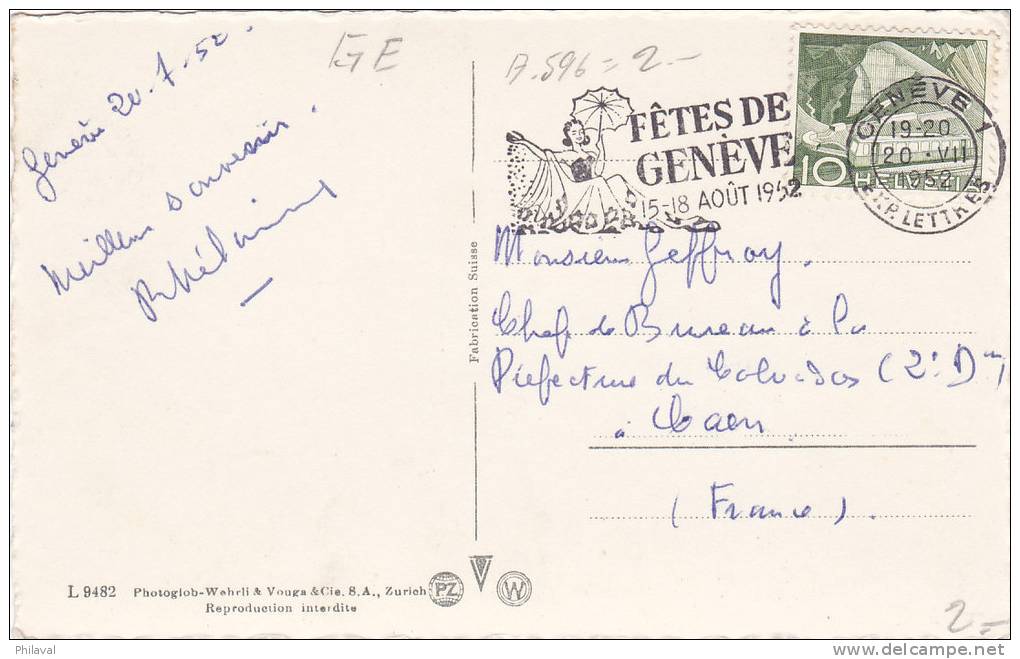 GE
A.596 = 2.-
Genève 20.7.52.
Meilleurs souvenirs.
FÊTES DE
GENÈVE
15-18 AOÛT 1952
GENÈVE 1
19-20
20·VII
1952
EXP. LETTRES
10 HELVETIA
Monsieur Geffroy.
Chef de Bureau à la
Préfecture du Calvados (2e Don)
à Caen
(France).
Fabrication Suisse
L 9482 Photoglob-Wehrli & Vouga & Cie. S.A., Zurich PZ W
Reproduction interdite
2.-
Philaval
delcampe.net